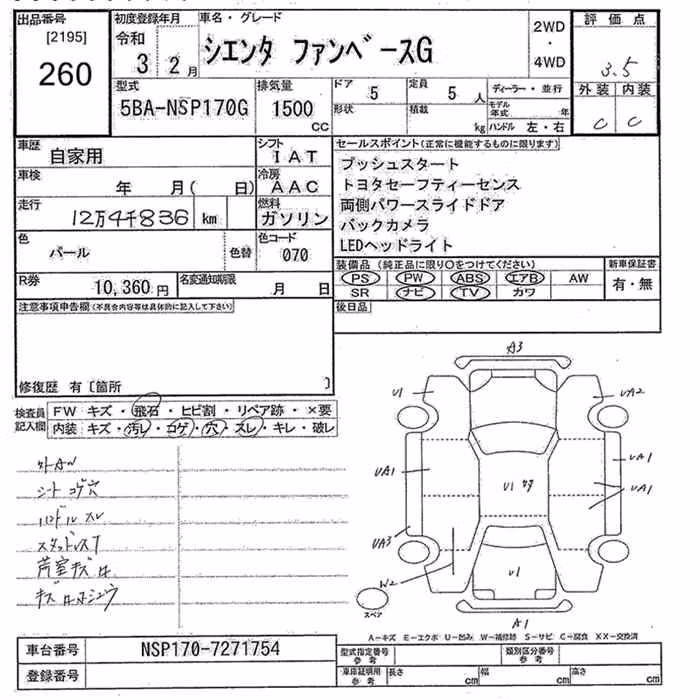 出品番号
[2195]
260
初度登録年月
令和
3 2月
車名・グレード
シエンタ ファンベースG
2WD
・
4WD
評価点
3.5
外装 内装
C C
型式
5BA-NSP170G
排気量
1500
cc
ドア
5
定員
5 人
形状
積載
kg
ディーラー・並行
モデル年式 年
ハンドル 左・右
車歴
自家用
シフト
IAT
車検
年 月( 日)
冷房
AAC
走行
12万4千836 km
燃料
ガソリン
色
パール
色替
色コード
070
R券
10,360円
名変通知期限
月 日
セールスポイント(正常に機能するものに限ります)
プッシュスタート
トヨタセーフティーセンス
両側パワースライドドア
バックカメラ
LEDヘッドライト
装備品(純正品に限り○をつけてください)
PS PW ABS エアB AW
SR ナビ TV カワ
新車保証書
有・無
後日品
注意事項申告欄(不具合内容等は具体的に記入して下さい)
修復歴 有〔箇所 〕
検査員記入欄
FW キズ・飛石・ヒビ割・リペア跡・×要
内装 キズ・汚レ・コゲ・穴・スレ・キレ・破レ
外AN
シートコゲ穴
ハンドルスレ
スタッドレス7
荷室キズ
A3
U1
UA2
UA1
UA1
UA1
U1
UA3
W2
U1
A1
スペア
A-キズ E-エクボ U-凹み W-補修跡 S-サビ C-腐食 XX-交換済
車台番号
NSP170-7271754
登録番号
型式指定番号
参考
類別区分番号
参考
車庫証明用
参考
長さ cm
幅 cm
高さ cm